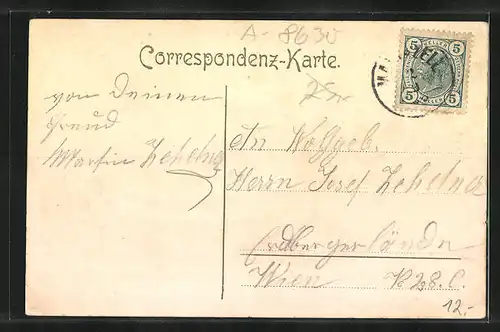 A-8630
Correspondenz-Karte.
5 HELLER 5
5 HELLER 5
von Deinen
Freund
Martin Zehetner
An Wohlgeb.
Herrn Josef Zehetner
Erdbergerlände
Wien
12.-